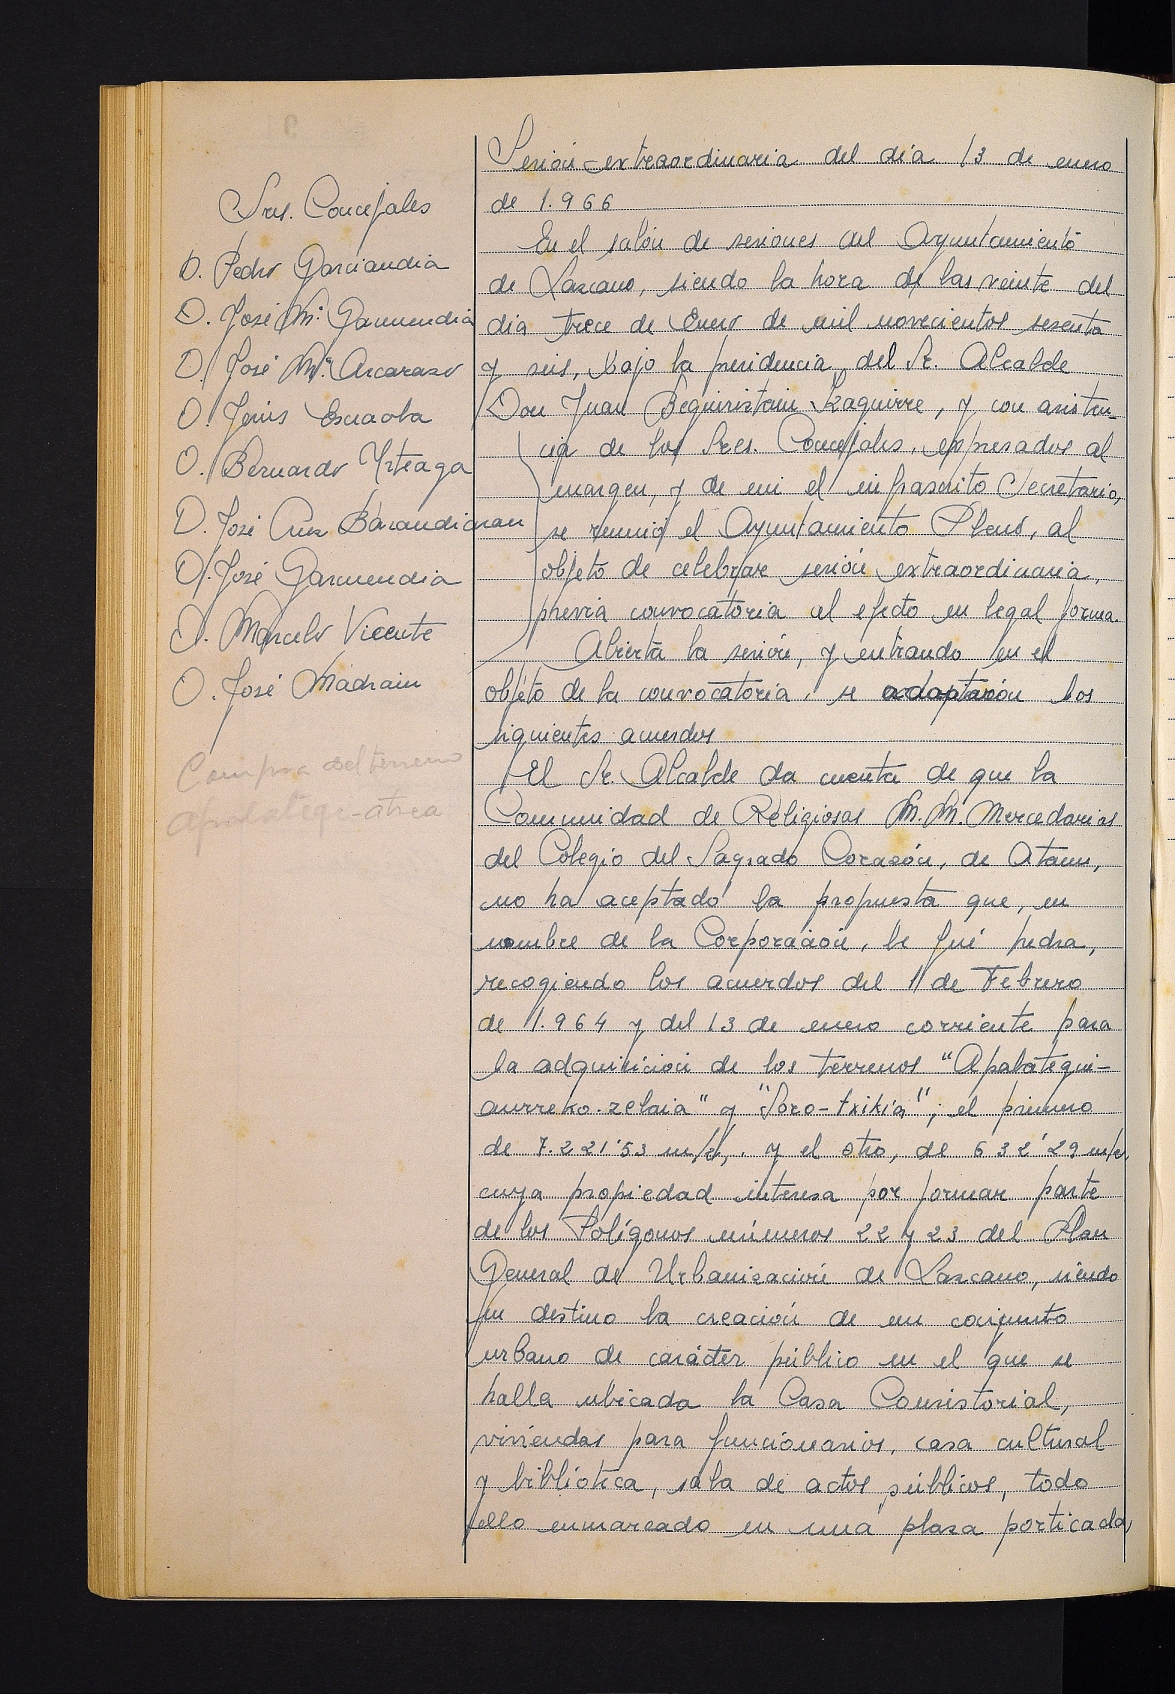 Sres. Concejales
D. Pedro Garciandia
D. José Mª Garmendia
D. José Mª Ascarazo
D. Jesús Esnaola
D. Bernardo Yrteaga
D. José Cruz Barandiaran
D. José Garmendia
D. Marcelo Vicente
D. José Madrain
Compra del terreno
Apalategi-atzea
Sesión extraordinaria del día 13 de enero
de 1.966
En el salón de sesiones del Ayuntamiento
de Lazcano, siendo la hora de las veinte del
día trece de Enero de mil novecientos sesenta
y seis, bajo la presidencia del Sr. Alcalde
Don Juan Beguiristain Izaguirre, y con asisten-
cia de los Sres. Concejales, expresados al
margen, y de mi el infrascrito Secretario,
se reunió el Ayuntamiento Pleno, al
objeto de celebrar sesión extraordinaria,
previa convocatoria al efecto en legal forma.
Abierta la sesión, y entrando en el
objeto de la convocatoria, se adoptaron los
siguientes acuerdos
El Sr. Alcalde da cuenta de que la
Comunidad de Religiosas M.M. Mercedarias
del Colegio del Sagrado Corazón, de Ataun,
no ha aceptado la propuesta que, en
nombre de la Corporación, le fué hecha,
recogiendo los acuerdos del 11 de Febrero
de 1.964 y del 13 de enero corriente para
la adquisición de los terrenos "Apalategui-
aurreko-zelaia" y "Soro-txikia"; el primero
de 7.221'53 m/2, y el otro, de 632'29 m/2,
cuya propiedad interesa por formar parte
de los Polígonos números 22 y 23 del Plan
General de Urbanización de Lazcano, siendo
su destino la creación de un conjunto
urbano de carácter público en el que se
halla ubicada la Casa Consistorial,
viviendas para funcionarios, casa cultural
y biblioteca, sala de actos públicos, todo
ello enmarcado en una plaza porticada,